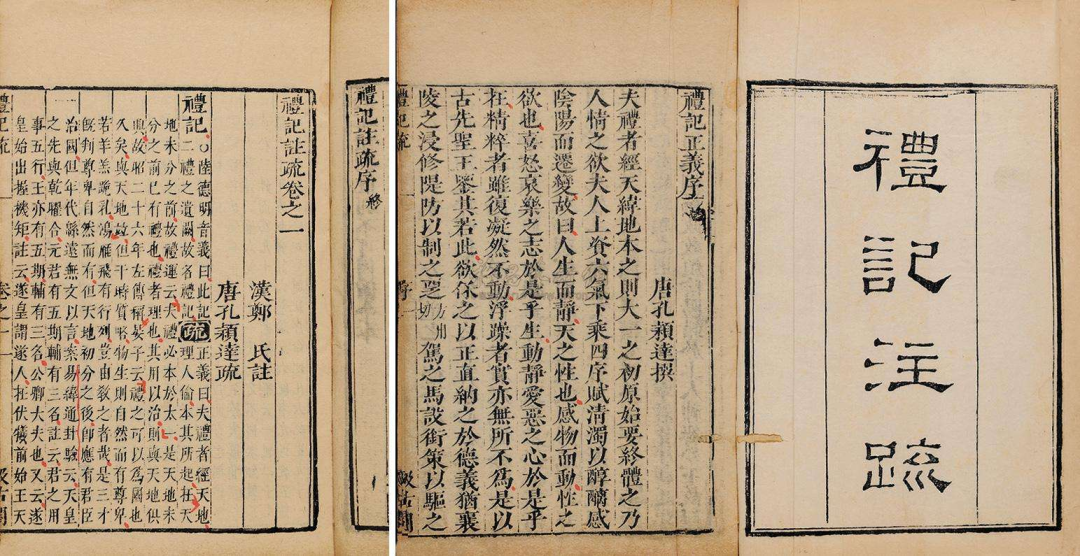 禮記注疏
禮記正義序
唐孔穎達撰
夫禮者經天緯地本之則大一之初原始要終體之乃
人情之欲夫人上資六氣下乘四序賦清濁以醇醨感
陰陽而遷變故曰人生而靜天之性也感物而動性之
欲也喜怒哀樂之志於是乎生動靜愛惡之心於是乎
在精粹者雖復凝然不動浮躁者實亦無所不為是以
古先聖王鑒其若此欲保之以正直納之於德義猶襄
陵之浸修隄防以制之覂駕之馬設銜策以驅之
禮記疏
序
汲古閣
禮記註疏序
終
禮記註疏卷之一
漢鄭氏註
唐孔穎達疏
禮記○陸德明音義曰此記二禮之遺闕故名禮記疏正義曰夫禮者經天地理人倫本其所起在天
地未分之前故禮運云夫禮必本於太一是天地未
分之前已有禮也禮者理也其用以治則與天地俱
興故昭二十六年左傳稱晏子云禮之可以為國也
久矣與天地並但于時質略物生則自然而有尊卑
若羊羔跪乳鴻雁飛有行列豈由教之者哉是三才
既判尊卑自然而有但天地初分之後即應有君臣
治國但年代緜遠無文以言案易緯通卦驗云天皇
之先與乾曜合元君有五期輔有三名註云君之用
事五行王亦有五期輔有三名公卿大夫也又云遂
皇始出握機矩註云遂皇謂遂人在伏羲前始王天
禮記疏
卷之一
汲古閣